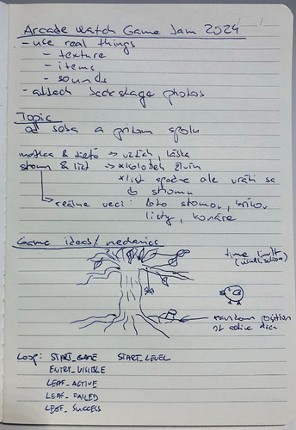 Arcade watch Game Jam 2024
- use real things
- texture
- items
- sounds
- attach backstage photos
Topic
od seba a pritom spolu
matka & dieťa → vzťah, láska
strom & list → *kolobeh živín
*list spadne ale vráti sa
do stromu
→ reálne veci: foto stromov, kríkov
listy, konáre
Game ideas/mechanics
time limit
(visualisation)
random position
of active
Loop: START_GAME START_LEVEL
ENTRY_VISIBLE
LEAF_ACTIVE
LEAF_FAILED
LEAF_SUCCESS